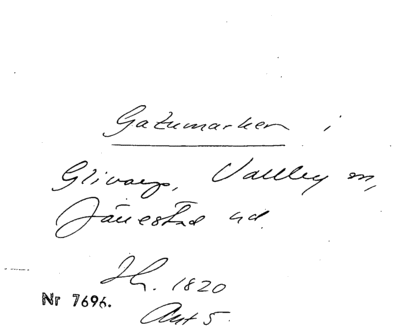 Gatumarken i
Glivarp, Valleby sn,
Järrestad hd.
Jh. 1820
Nr 7696.
Ant 5.